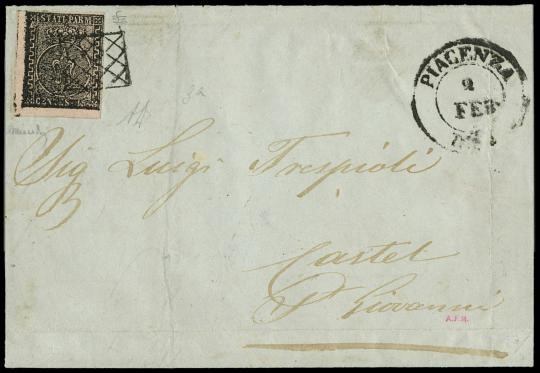 STATI PARM.
CENTES. 15
PIACENZA
2
FEB
Sig Luigi Trespioli
Castel
S. Giovanni
A.F.R.